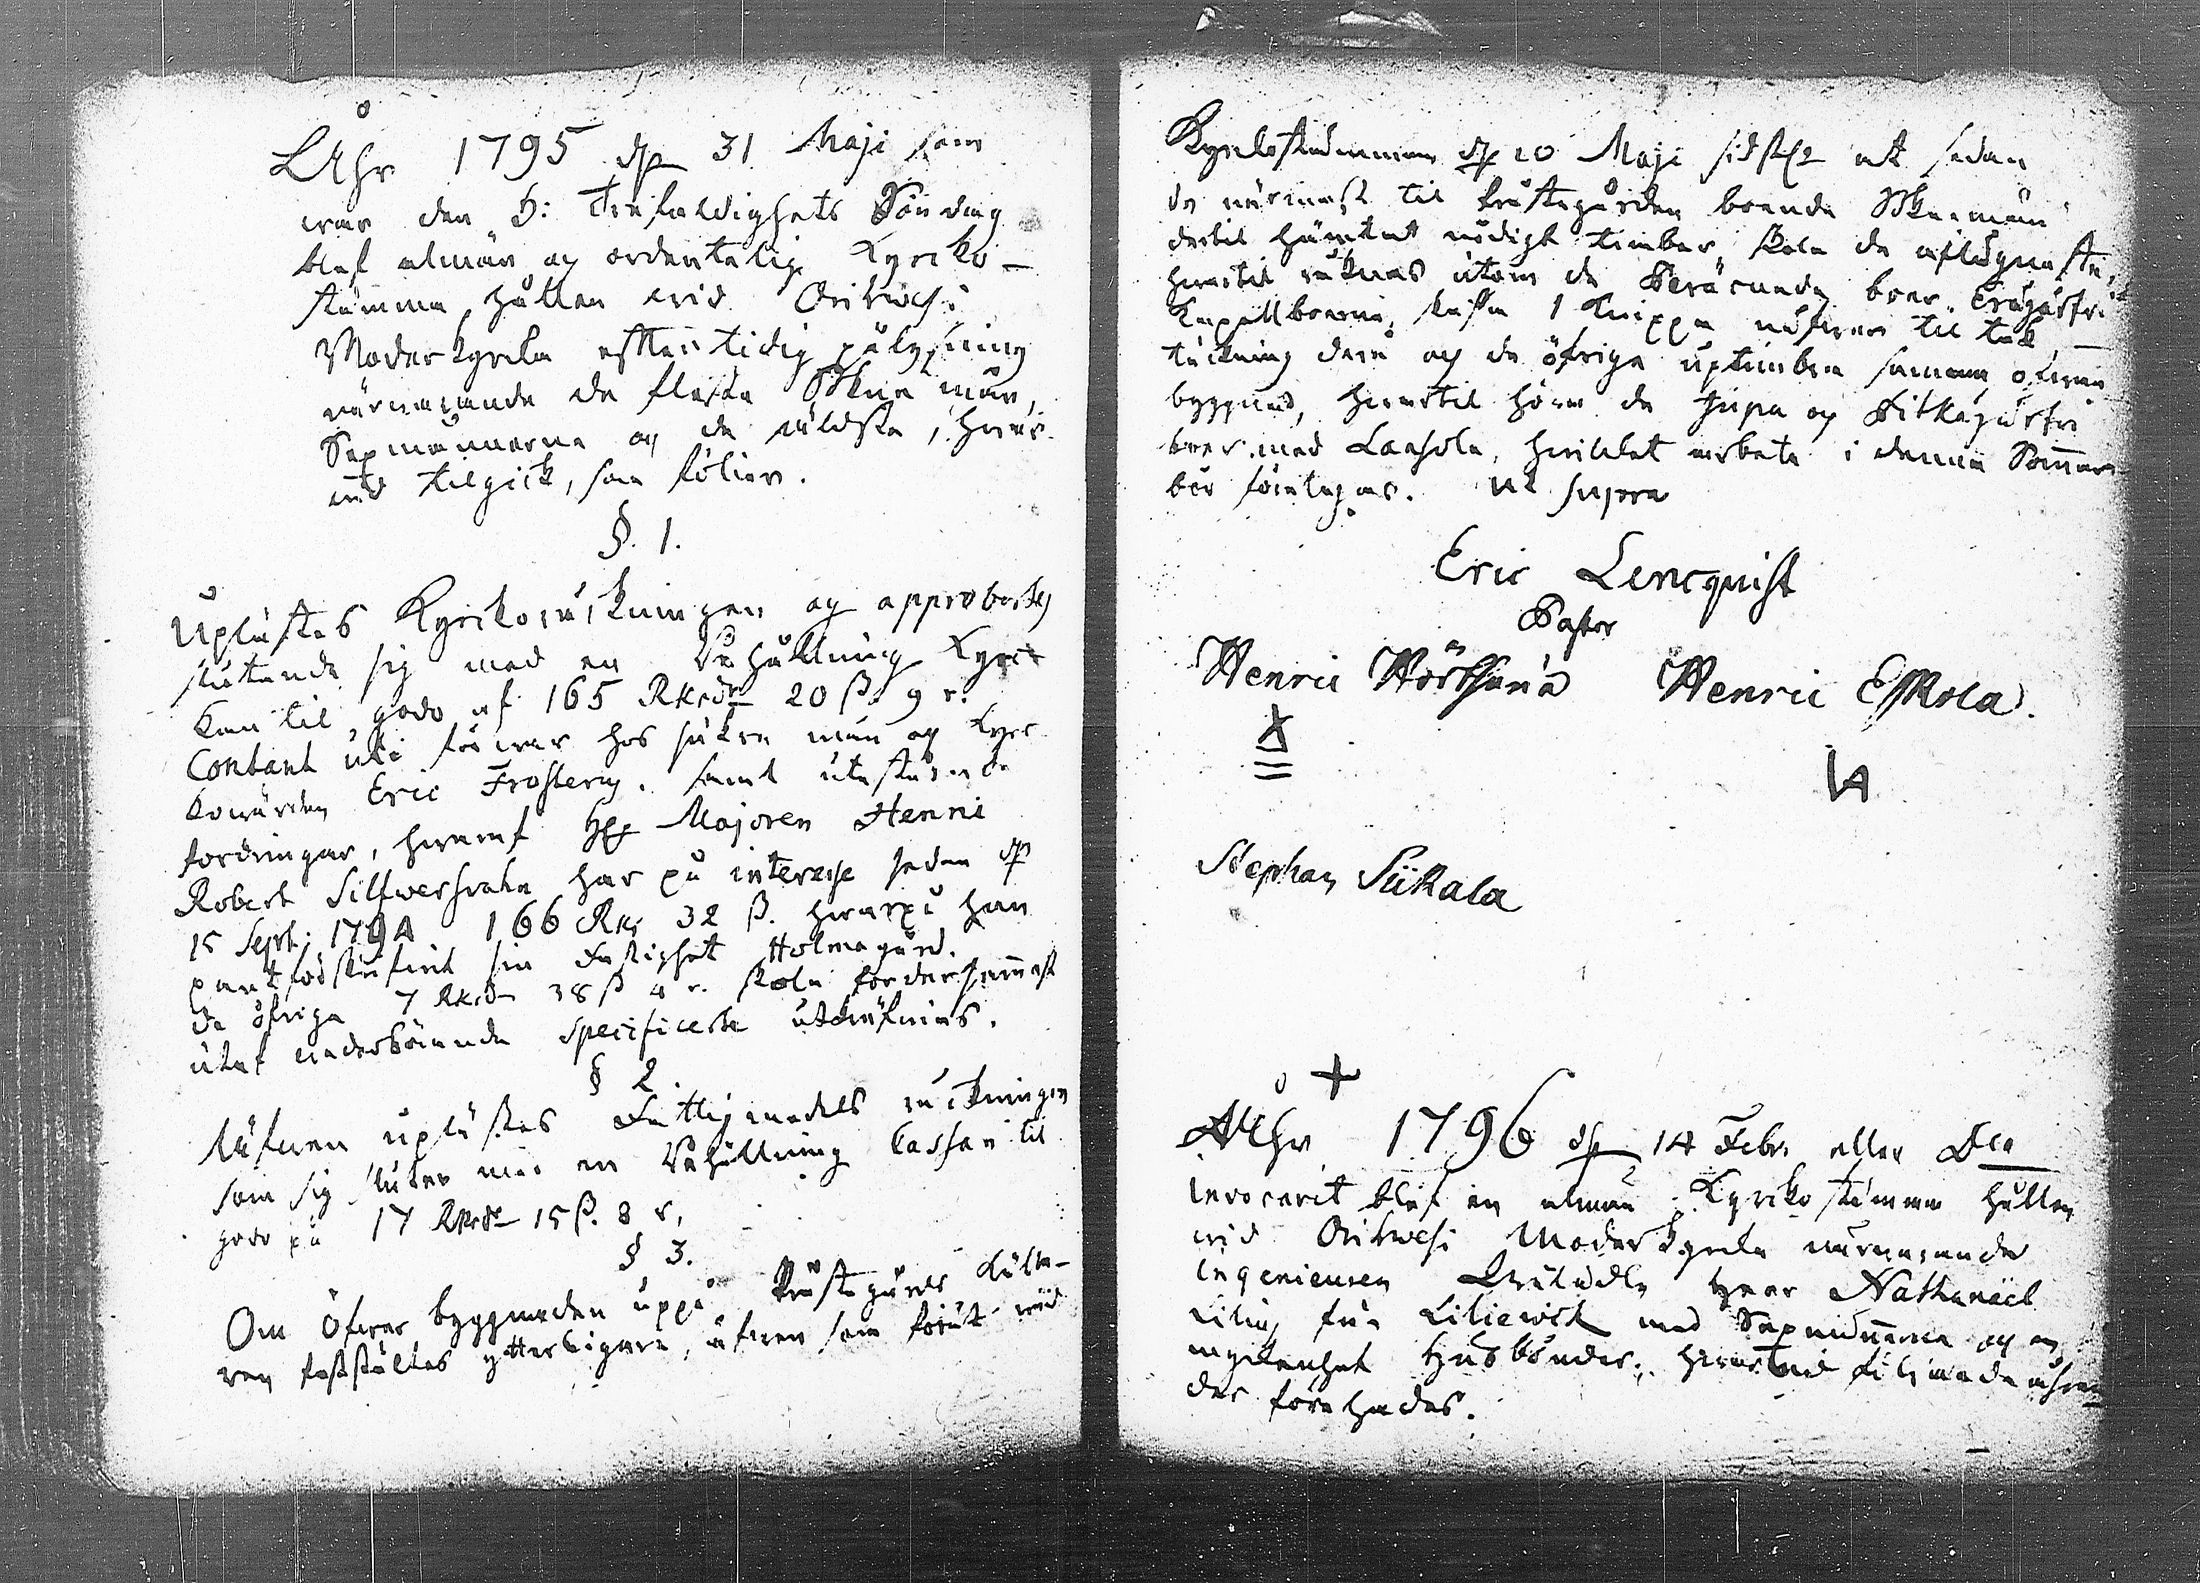 Åhr 1795 dn 31 Maji som
war den H: Trefaldighets Söndag
blef alman och ordentelig Kyrcko-
stämma hållen wid Orihwesi
Moderkyrcka efter tidig pålysning
närwarande de fleste Sokne män,
Sexmännerne och de äldsta, hwar-
wid tilgick, som följer.
§. 1.
Uplästes Kyrckoräkningen och approberades
slutande sig med en Behållning Kyrc-
kan til godo af 165 Rksdr 20 ß 9 r.
Contant uti förwar hos säkra män och Kyrc-
kowärden Eric Frosterus. samt utestående
fordringar, hwaraf Hr Majoren Henric
Robert Silfwersvahn har på interesse sedan dn
15 Sept: 1794 166 Rks 32 ß. hwarpå han
pant förskrifwit sin Fastighet Holma gård.
de öfriga 7 Rksdr 38 ß 4 r. skola fordersammast
utaf wederbörande specificerte utkräfwas.
§ 2.
Äfwen uplästes Fattigmedels räkningen
som sig sluter med en Behållning Cassan til
godo på 17 Rksdr 15 ß. 8 r,
§ 3.
Om Öfwer byggnaden uppå Prästegårds
ren fastställtes ytterligare, äfwen som förut wid
Kyrckostämman dn 10 Maji sidstl at sedan
de närmast til Prästegården boende Sokne män
dertil hämtat nödigt timber, skola de aflägnaste,
hwartil räknas utom de boer,
Kapellboerne, skaffa 1 knippa näfwer til tak
täckning derå och de öfriga uptimbra samma öfwer
byggnad, hwartil höra de Hirva och Pitkäjärfwi
boer med Laasola, hwilket arbete i denna Sommar
bör företagas. Ut supra
Eric Lencquist
Pastor
Henric Henric Eskola.
Stephan Siikala
Åhr 1796 dn 14 Febr. eller Dca
Invocavit blef en alman Kyrcko stämma hållen
wid Orihwesi Moderkyrcka närwarande
Ingenieuren Herr Nathanael
Lilius från Liliewick med Sexmännerna och en
myckenhet Husbönder; hwarwid följande ähren
der förehades.